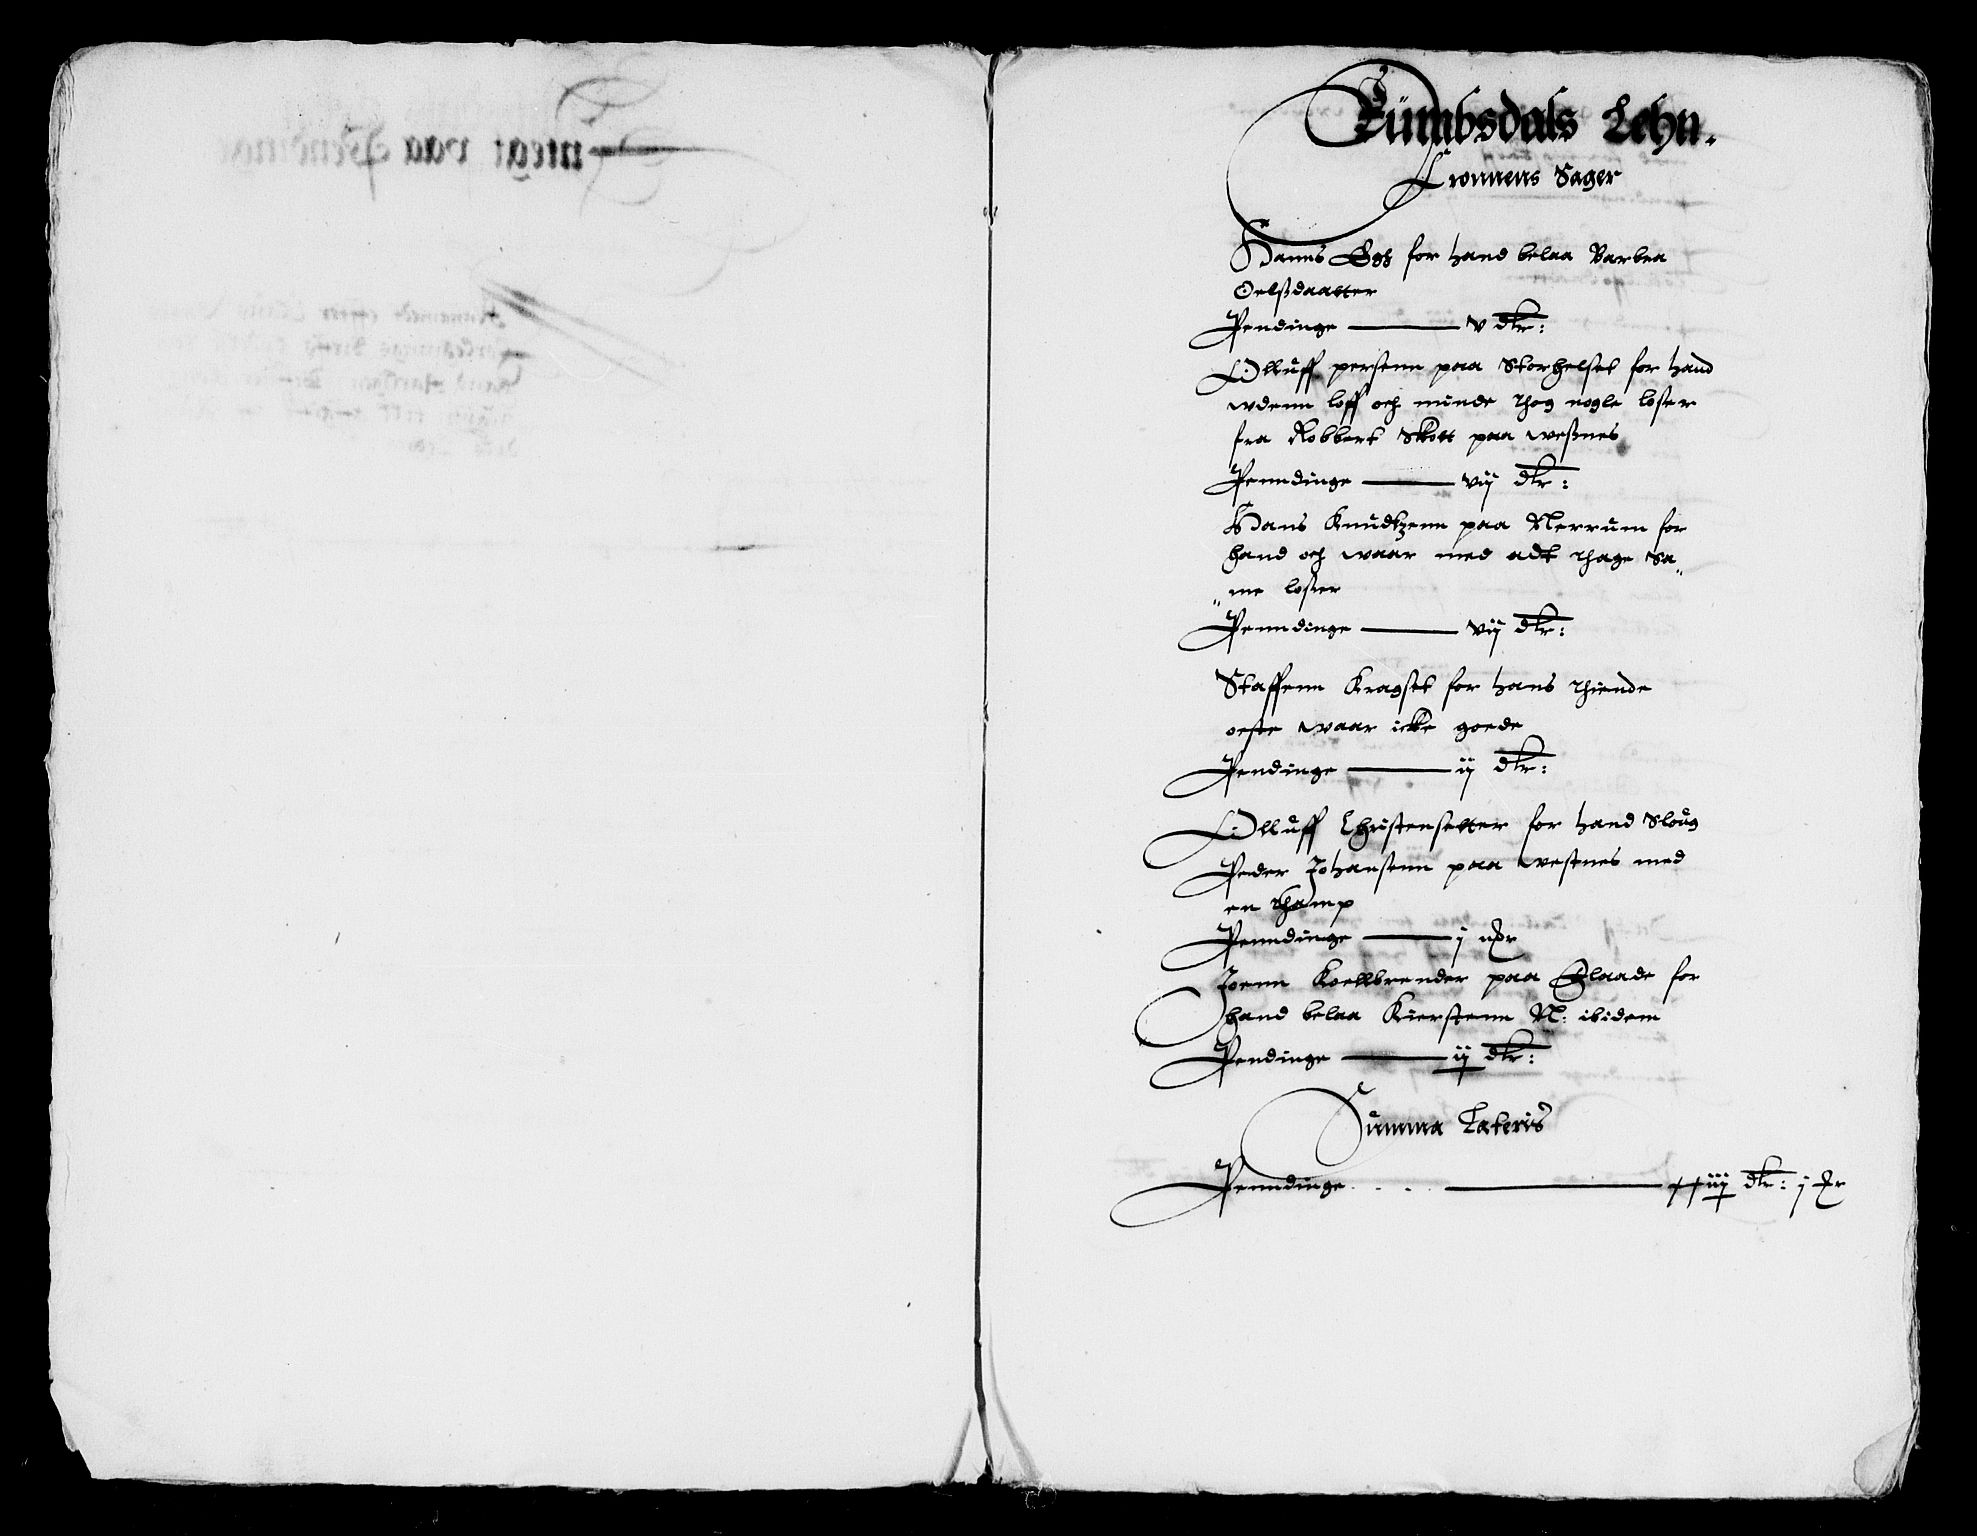 Rümbsdals Lehn.
Cronnens Sager
Hanns for hand belaa Barbra
Oelßdaatter
Pendinge — v dlr:
Olluff persenn paa Storhelset for hand
wdenn loff och minde thog nogle loser
fra Robbert Skott paa weßnes
Penndinge — vij dlr:
Hans Knudtzenn paa Nerrum for
hand och waar med adt thage Sa„
„me loser
Penndinge — vij dlr:
Staffenn Kragset for hans thiende
oeste waar icke goede
Pendinge — ij dlr:
Olluff Christensetter for hand Sloug
Peder Johansenn paa westnes med
en thamp
Penndinge — j
Joenn Koellbrender paa for
hand belaa Kierstenn N: ibidem
Pendinge — ij dlr:
Summa Lateris
Penndinge — xxiij dlr: j